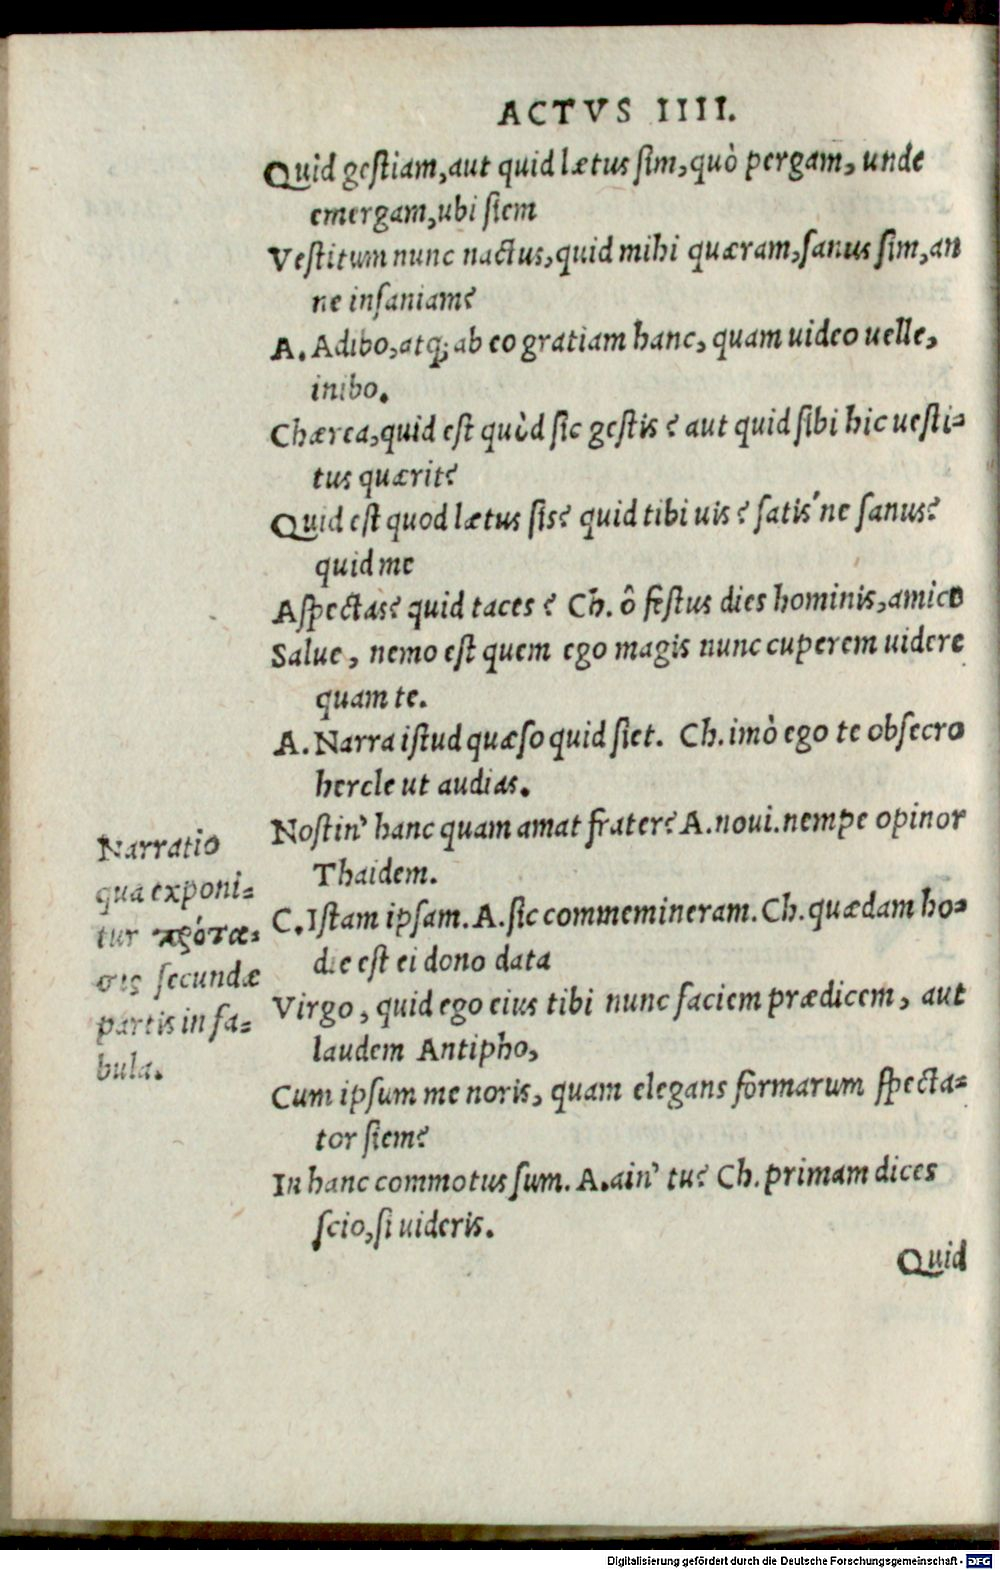 ACTVS IIII.
Quid gestiam, aut quid lætus sim, quò pergam, unde
emergam, ubi siem
Vestitum nunc nactus, quid mihi quæram, sanus sim, an
ne insaniam?
A. Adibo, atq; ab eo gratiam hanc, quam uideo uelle,
inibo.
Chærea, quid est quòd sic gestis? aut quid sibi hic uesti-
tus quærit?
Quid est quod lætus sis? quid tibi uis? satis'ne sanus?
quid me
Aspectas? quid taces? Ch. ô festus dies hominis, amice
Salue, nemo est quem ego magis nunc cuperem uidere
quam te.
A. Narra istud quæso quid siet. Ch. imò ego te obsecro
hercle ut audias.
Nostin' hanc quam amat frater? A. noui. nempe opinor
Thaidem.
C. Istam ipsam. A. sic commemineram. Ch. quædam ho-
die est ei dono data
Virgo, quid ego eius tibi nunc faciem prædicem, aut
laudem Antipho,
Cum ipsum me noris, quam elegans formarum specta-
tor siem?
In hanc commotus sum. A. ain' tu? Ch. primam dices
scio, si uideris.
Quid
Narratio
qua exponi-
tur πρότα-
σις secundæ
partis in fa-
bula.
Digitalisierung gefördert durch die Deutsche Forschungsgemeinschaft - DFG